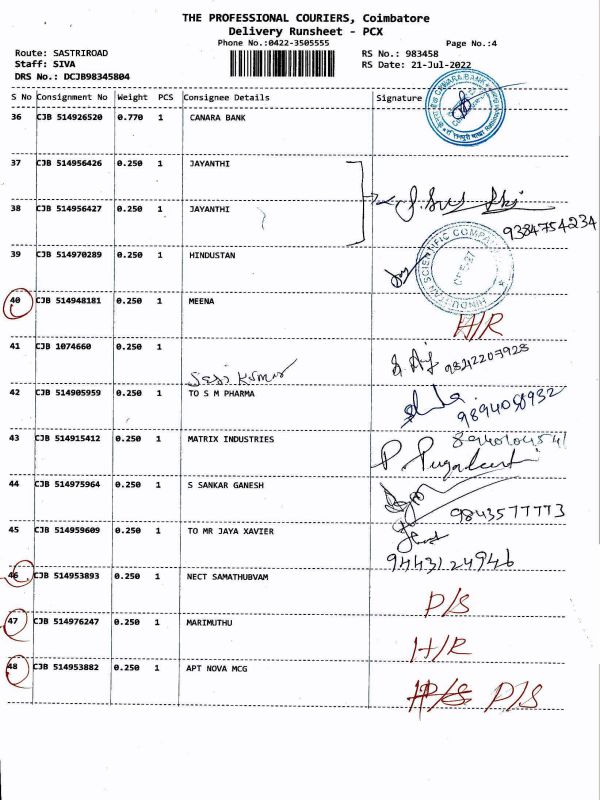 THE PROFESSIONAL COURIERS, Coimbatore
Delivery Runsheet - PCX
Phone No.:0422-3505555
Page No.:4
Route: SASTRIROAD
RS No.: 983458
Staff: SIVA
RS Date: 21-Jul-2022
DRS No.: DCJB98345804
S No Consignment No Weight PCS Consignee Details Signature
CANARA BANK
36 CJB 514926520 0.770 1 CANARA BANK
37 CJB 514956426 0.250 1 JAYANTHI
38 CJB 514956427 0.250 1 JAYANTHI
9384754234
39 CJB 514970289 0.250 1 HINDUSTAN
HINDUSTAN SCIENTIFIC COMPANY
CBE-37
40 CJB 514948181 0.250 1 MEENA
H/R
41 CJB 1074660 0.250 1
Sasi Kumar
9842207928
42 CJB 514905959 0.250 1 TO S M PHARMA
9894050932
43 CJB 514915412 0.250 1 MATRIX INDUSTRIES
8940104541
44 CJB 514975964 0.250 1 S SANKAR GANESH
9843577773
45 CJB 514959609 0.250 1 TO MR JAYA XAVIER
9443124946
46 CJB 514953893 0.250 1 NECT SAMATHUBVAM
P/S
47 CJB 514976247 0.250 1 MARIMUTHU
H/R
48 CJB 514953882 0.250 1 APT NOVA MCG
P/S